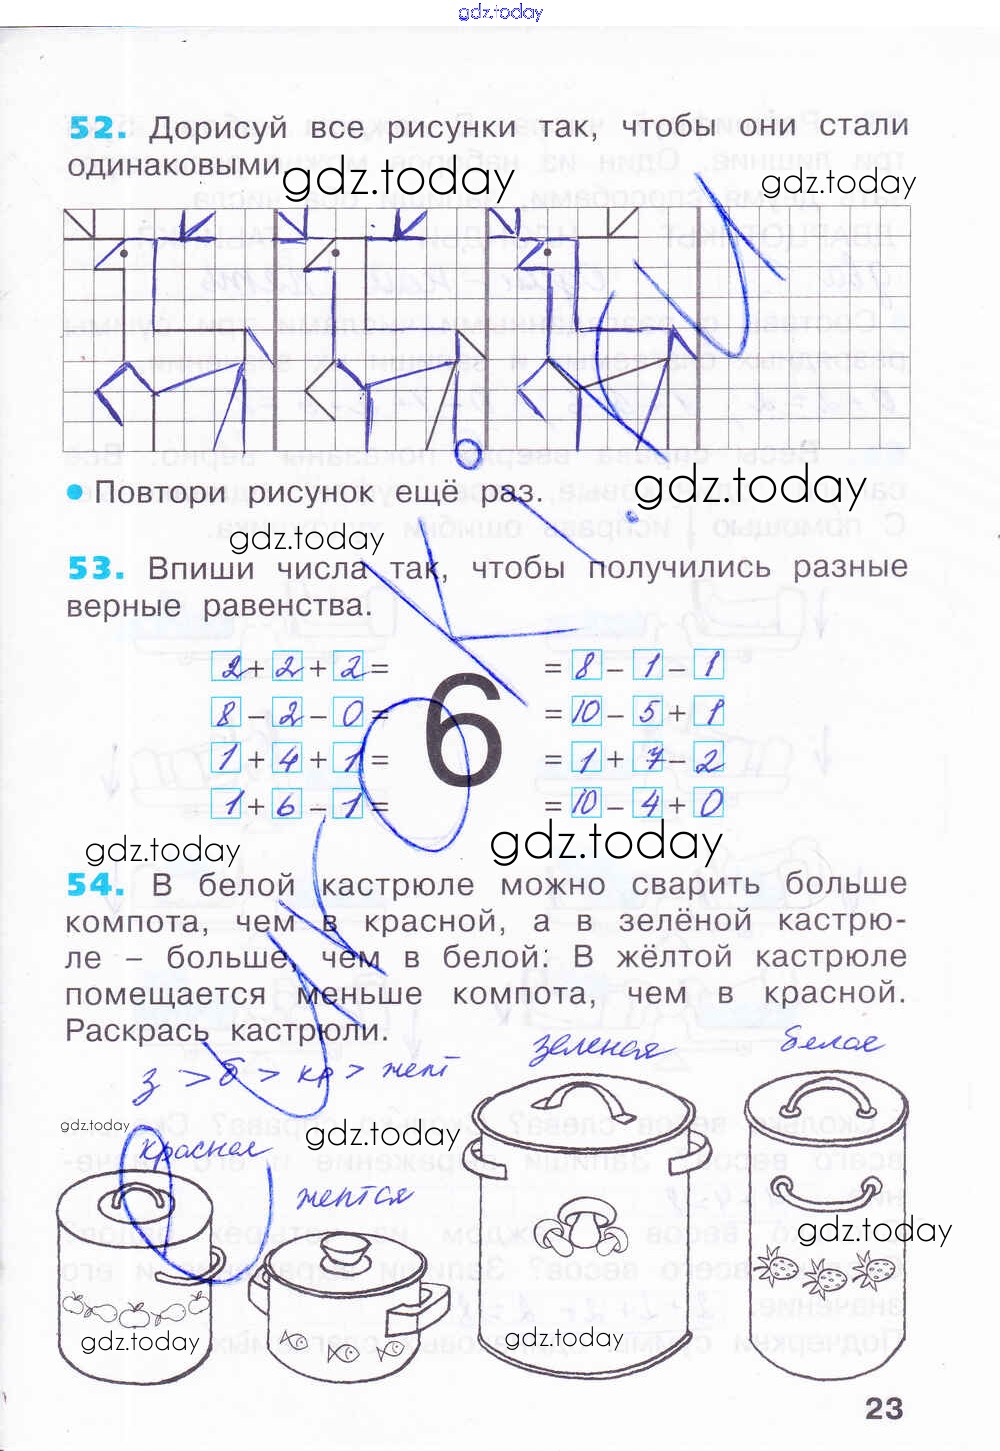 gdz.today
52. Дорисуй все рисунки так, чтобы они стали
одинаковыми.
gdz.today
gdz.today
• Повтори рисунок ещё раз.
gdz.today
gdz.today
53. Впиши числа так, чтобы получились разные
верные равенства.
2 + 2 + 2 = 6 = 8 - 1 - 1
8 - 2 - 0 = 6 = 10 - 5 + 1
1 + 4 + 1 = 6 = 1 + 7 - 2
1 + 6 - 1 = 6 = 10 - 4 + 0
gdz.today
gdz.today
54. В белой кастрюле можно сварить больше
компота, чем в красной, а в зелёной кастрю-
ле – больше, чем в белой. В жёлтой кастрюле
помещается меньше компота, чем в красной.
Раскрась кастрюли.
з > б > кр > желт
зеленая
белая
gdz.today
gdz.today
красная
желтая
gdz.today
gdz.today
gdz.today
gdz.today
23